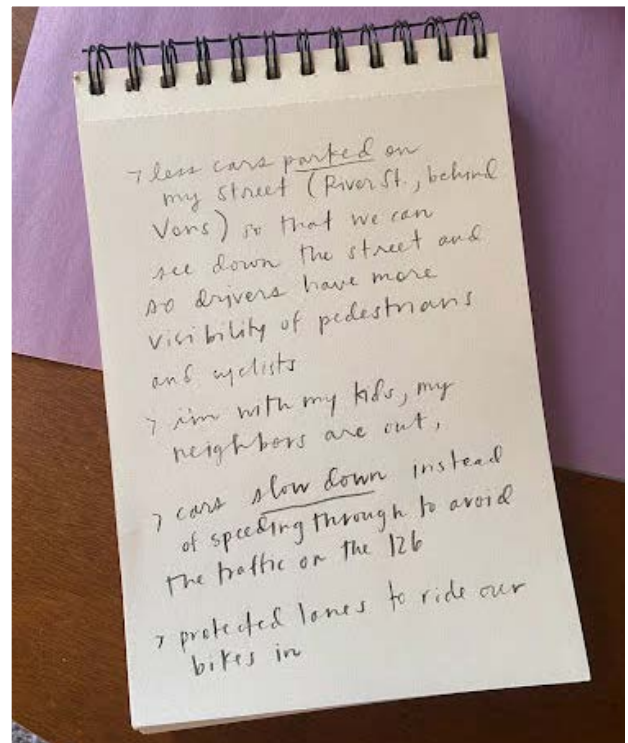 > less cars parked on
my street (River St., behind
Vons) so that we can
see down the street and
so drivers have more
visibility of pedestrians
and cyclists
> i'm with my kids, my
neighbors are out,
> cars slow down instead
of speeding through to avoid
the traffic on the 126
> protected lanes to ride our
bikes in